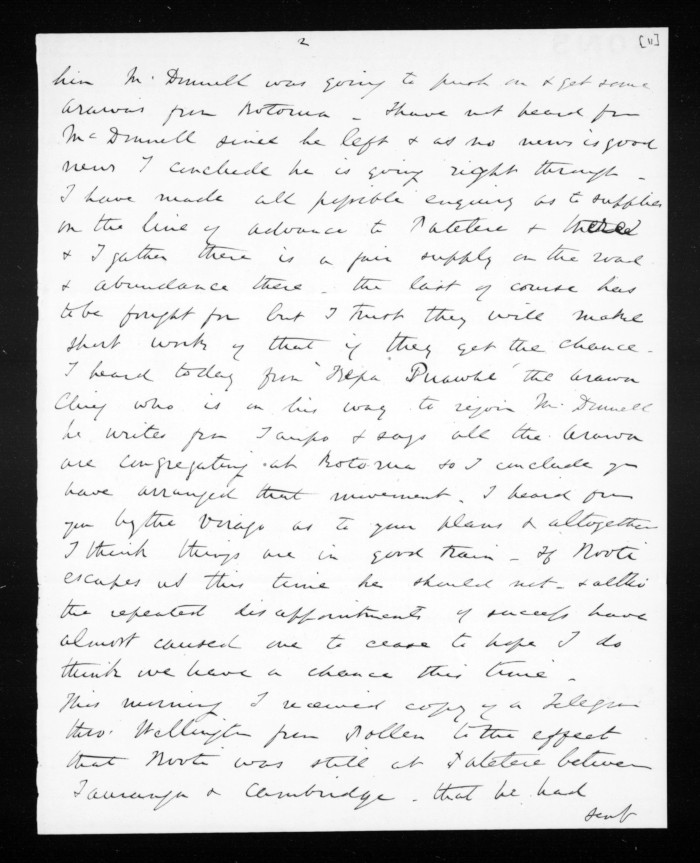 2
[11]
him Mc Donnell was going to push on & get some
Arawas from Rotorua _ I have not heard from
McDonnell since he left & as no news is good
news I conclude he is going right through _
I have made all possible enquiry as to supplies
on the line of advance to Patetere &
& I gather there is a fair supply on the road
& abundance there _ the last of course has
to be fought for but I trust they will make
short work of that if they get the chance _
I heard today from the Arawa
Chief who is on his way to rejoin Mc Donnell
he writes from Taupo & says all the Arawa
are congregating at Rotorua so I conclude you
have arranged that movement _ I heard from
you by the Virago as to your plans & altogether
I think things are in good train _ If Kooti
escapes us this time he should not _ & altho
the repeated disappointments of success have
almost caused me to cease to hope I do
think we have a chance this time _
This morning I received copy of a Telegram
thro. Wellington from Pollen to the effect
that Kooti was still at Patetere between
Tauranga & Cambridge _ that he had
sent